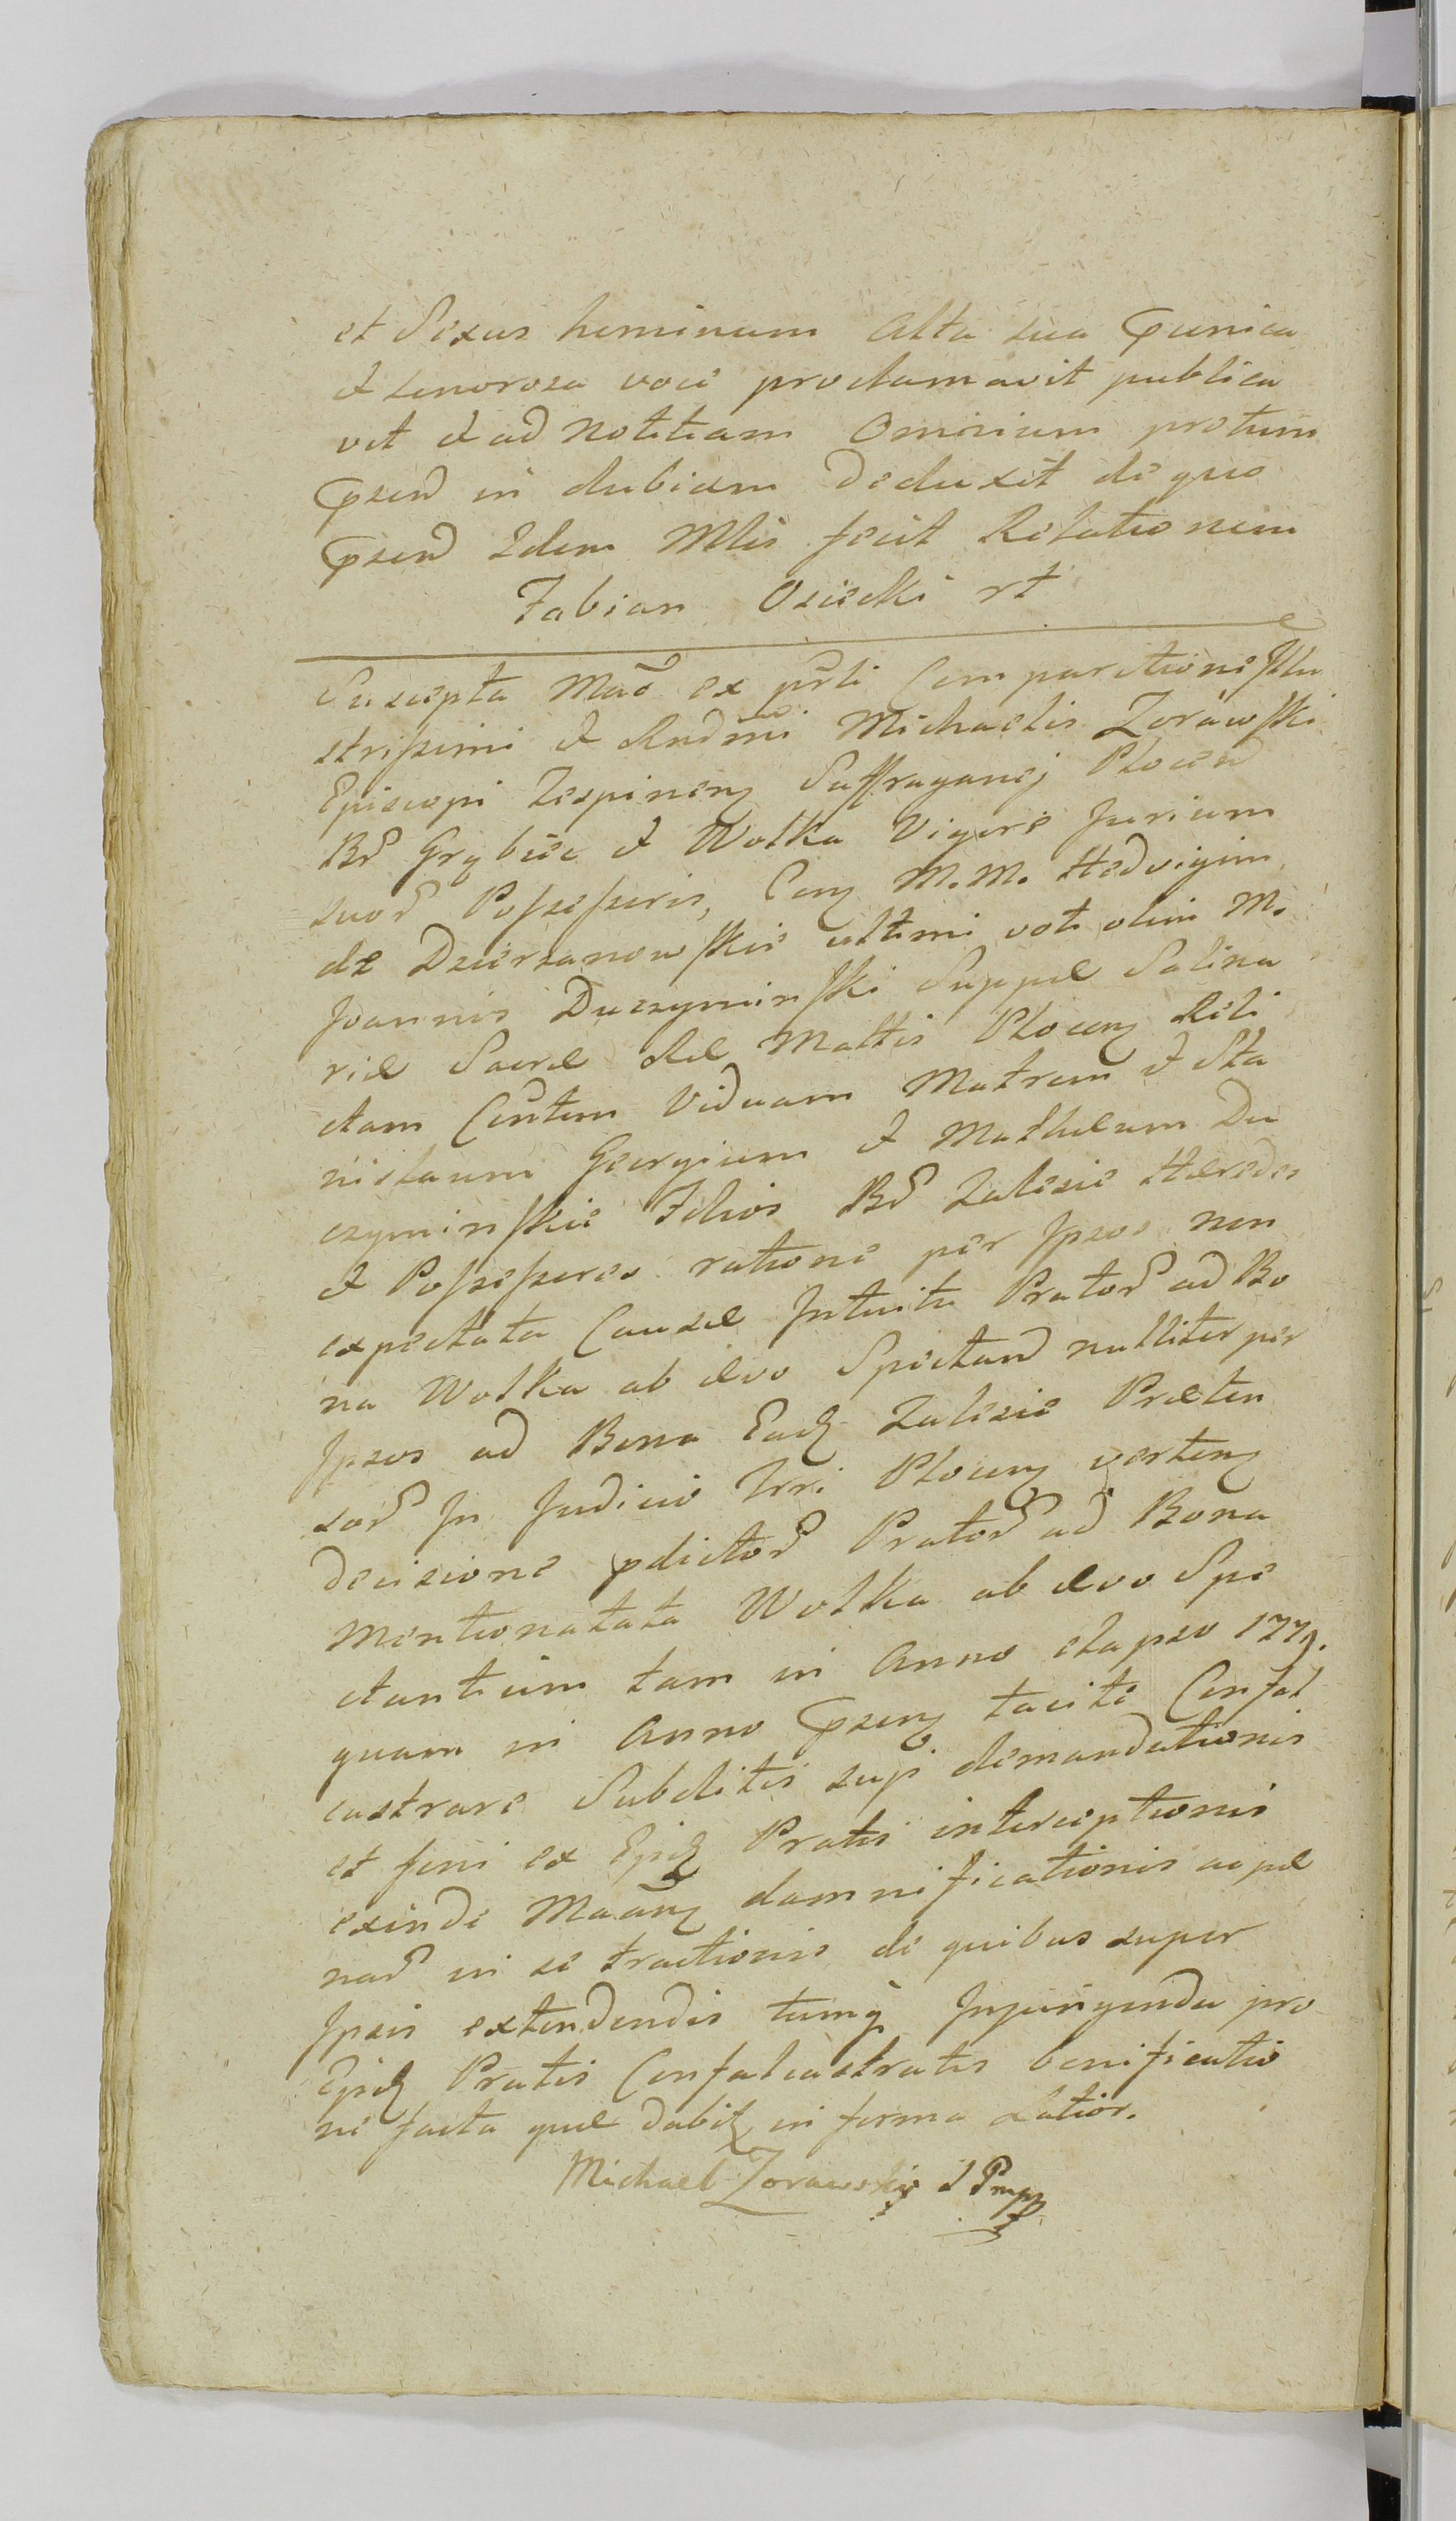 et Sexus hominum alta sua Conica
et senorosa voce proclamavit publica
vit et ad notitiam Omnium protum
psend in dubiam Deduxit de quo
psend Idem Mlis fecit Relationem
Fabian Osiecki rt
Suscepta Mao ex prli Comparitione Illu
strissimi et Rndmi Michaelis Zorawski
Episcopi Zespinens Suffraganej Plocen
Br Grąbiec et Wolka Vigore Jurium
suor Possessoris, Con M. M. Hedvigim
de Dzierzanowskie ultimi voti olim M.
Joannis Duczyminski Suppae Salina
riae Sacrae Rae Mattis Plocen Reli
ctam Contem Viduam Matrem et Sta
nislaum Georgium et Mathaeum Du
czyminskie Filios Br Zalesie Haeredes
et Possessores ratione per Ipsos non
expectata Causae Intuitu Prator ad Bo
na Wolka ab aevo Spectand nulliter per
Ipsos ad Bona Ead Zalesie Praeten
sor In Judicio Trri Plocen verten
Decisione pdictor Prator ad Bona
Mentionatata Wolka ab aevo Spe
ctantium tam in Anno elapso 1779.
quam in Anno psen tacite Confal
castrare Subditis sup demandationis
et feni ex Eid Pratis interceptionis
exinde Maan damnificationis ac pae
nar in se tractionis de quibus super
Ipsis extendendis tumq Injungenda pro
Eid Pratis Confalcastratis bonificatio
ne facta quae dabit in forma Latior.
Michael Zorawski